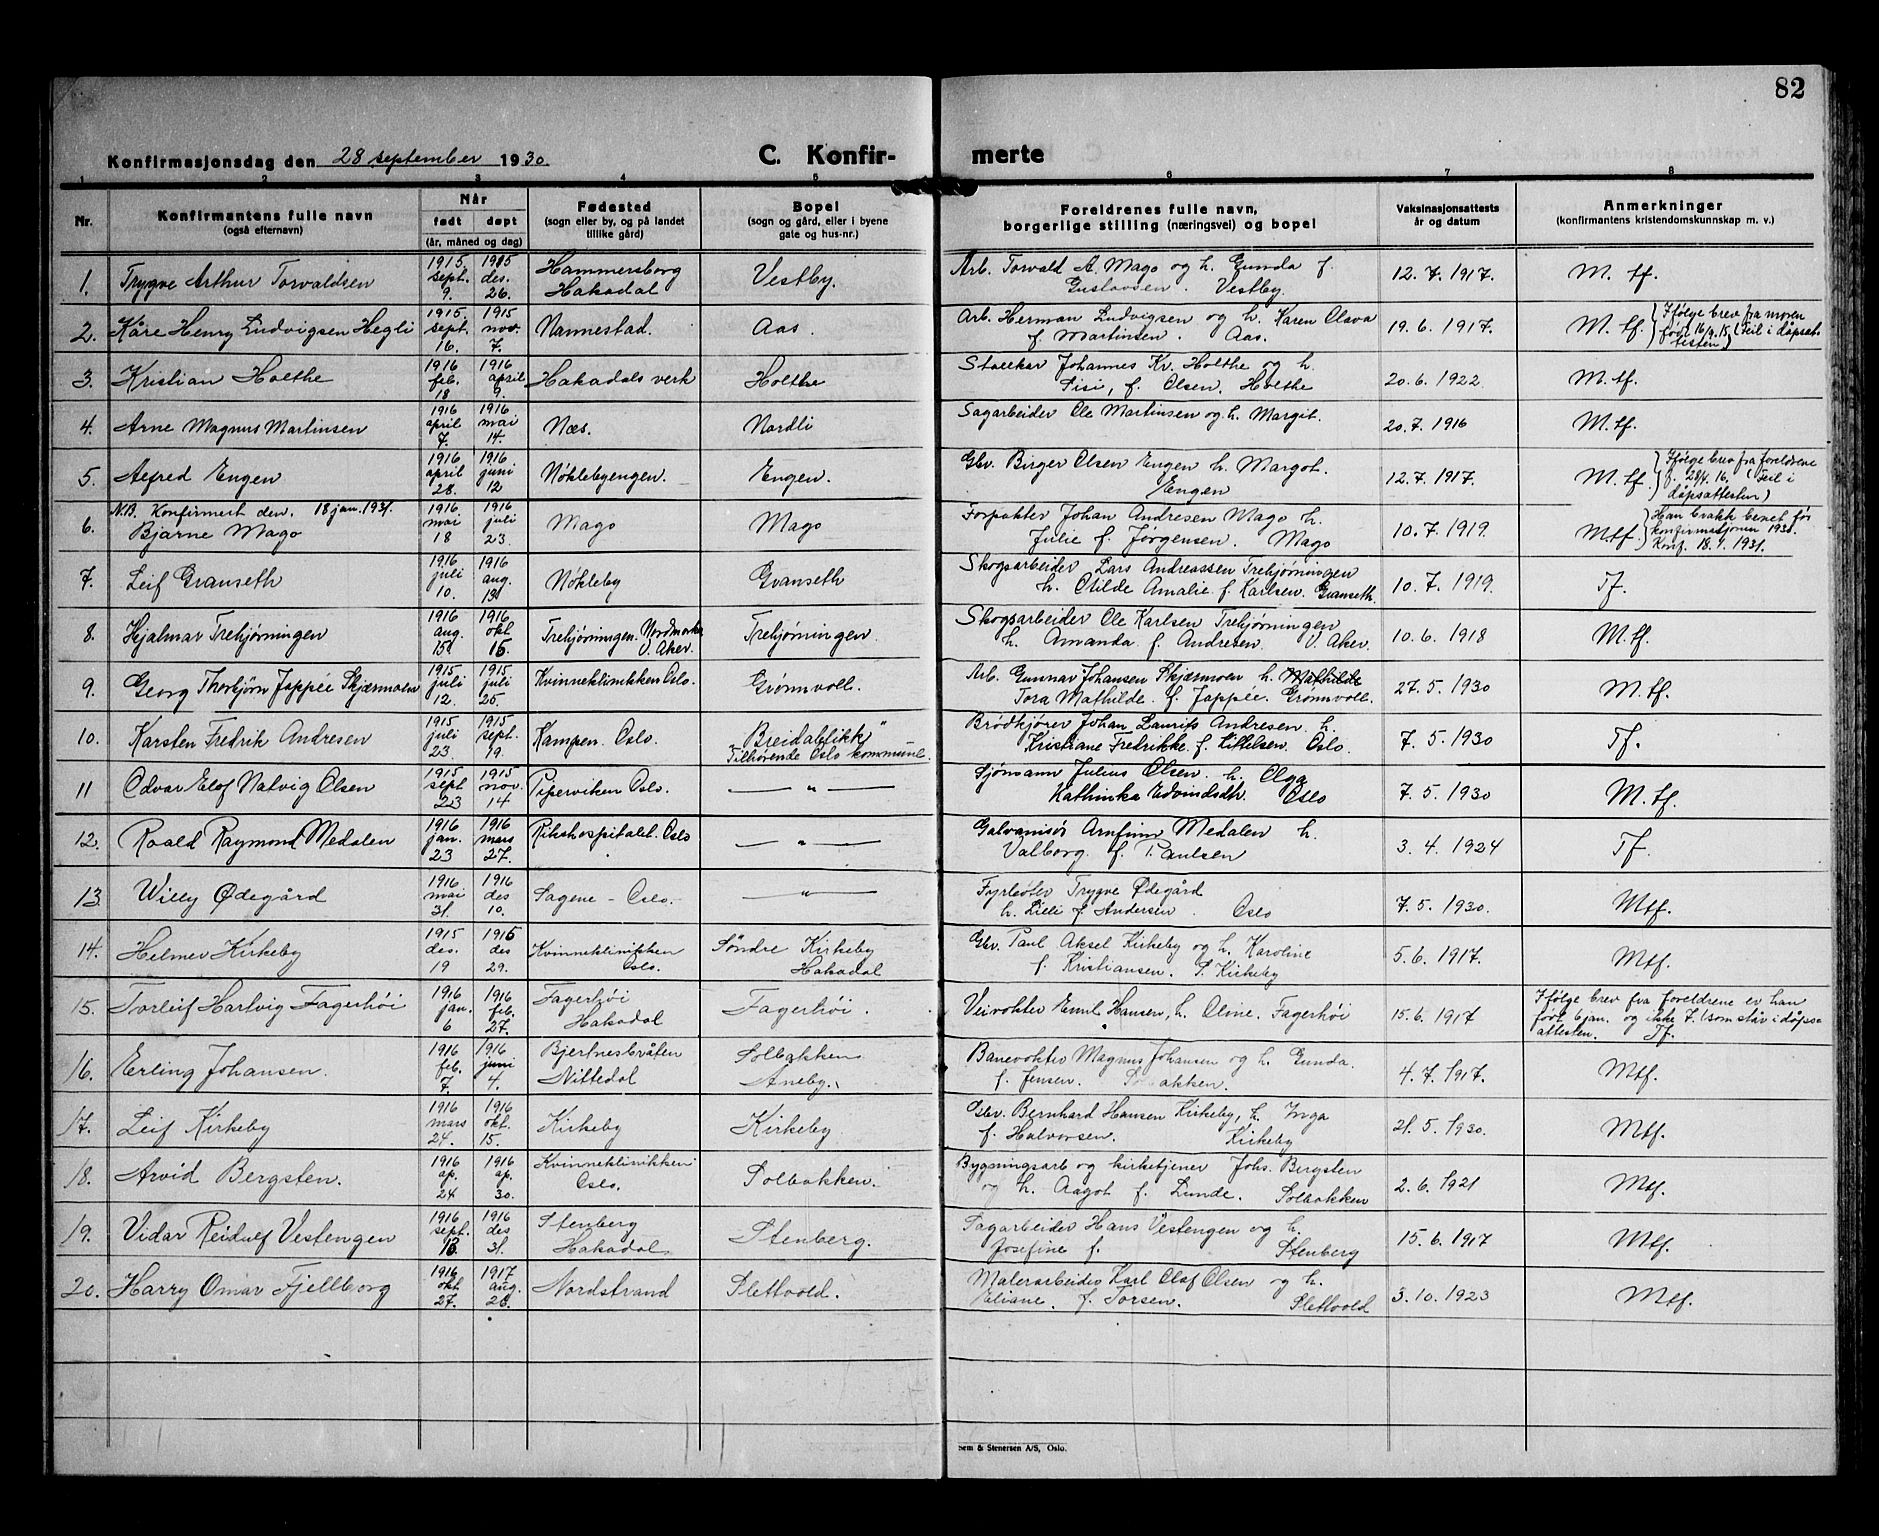 82
Konfirmasjonsdag den 28 september 1930
C. Konfir-
merte
1 2 3 4 5 6 7 8
Nr.
Konfirmantens fulle navn
(også efternavn)
Når
født døpt
(år, måned og dag)
Fødested
(sogn eller by, og på landet
tillike gård)
Bopel
(sogn og gård, eller i byene
gate og hus-nr.)
Foreldrenes fulle navn,
borgerlige stilling (næringsvei) og bopel
Vaksinasjonsattests
år og datum
Anmerkninger
(konfirmantens kristendomskunnskap m. v.)
1. Trygve Arthur Torvaldsen 1915 sept. 9. 1915 des. 26. Hammersborg Hakadal Vestby. Arb. Torvald A. Mago og h. Gunda f. Gustavsen. Vestby. 12. 7. 1917. M. tf.
2. Kåre Henry Ludvigsen Hegli 1915 sept. 16. 1915 nov. 7. Nannestad. Aas. Arb. Herman Ludvigsen og h. Karen Olava f. Martinsen. Aas. 19. 6. 1917. M. tf. Ifølge brev fra moren født 16/9.15. (Feil i dåpsattesten)
3. Kristian Holthe 1916 feb. 18 1916 april 9. Hakadals verk Holthe Johannes Kr. Holthe og h. Sisi, f. Olsen. Holthe 20. 6. 1922. M. tf.
4. Arne Magnus Martinsen 1916 april 7. 1916 mai 14. Næs. Nordli Sagarbeider Ole Martinsen og h. Margit. 20. 7. 1916 M. tf.
5. Alfred Engen 1916 april 28. 1916 juni 12 Nøklebyengen. Engen. Gbr. Birger Olsen Engen h. Margot. Engen 12. 7. 1917. M. tf. Ifølge brev fra foreldrene f. 28/4. 16. (Feil i dåpsattesten)
6. N.B. Konfirmert den. 18 jan. 1931. Bjarne Mago 1916 mai 18 1916 juli 23. Mago Mago Forpakter Johan Andresen Mago h. Julie f. Jørgensen. Mago 10. 7. 1919. M.tf. Han brakk benet før konfirmasjonen 1930. Konf. 18. 1. 1931.
7. Leif Granseth 1916 juli 10. 1916 aug. 13 Nøkleby Granseth Skogsarbeider Lars Andreassen Trehjørningen h. Otilde Amalie f. Karlsen. Granseth. 10. 7. 1919. Tf.
8. Hjalmar Trehjørningen 1916 aug. 15 1916 okt 15. Trehjørningen. Nordmarka V. Aker. Trehjørningen. Skogsarbeider Ole Karlsen Trehjørningen h. Amanda f. Andresen. V. Aker. 10. 6. 1918 M. tf.
9. Georg Thorbjørn Jappée Skjærmoen 1915 juli 12. 1915 juli 25. Kvinneklinikken Oslo. Grønvoll. Arb. Gunnar Johansen Skjærmoen h. Mathilde Tora Mathilde f. Jappée. Grønvoll. 27. 5. 1930 M. tf.
10. Karsten Fredrik Andresen 1915 juli 23. 1915 sept. 19. Kampen. Oslo. Breidablikk" Tilhørende Oslo kommune. Brødkjører Johan Laurits Andresen. h. Kristiane Fredrikke f. Kittelsen. Oslo. 7. 5. 1930 Tf.
11 Odvar Elof Natvig Olsen 1915 sept 23 1915 nov. 14 Piperviken Oslo. — " — Sjømann Julius Olsen. h. Olga Kathinka Edvindsdtr. Oslo 7. 5. 1930 M. tf.
12. Roald Raymond Medalen 1916 jan. 23 1916 mars 27. Rikshospitalet. Oslo — " — Galvanisør Arnfinn Medalen h. Valborg. f. Paulsen 3. 4. 1924 Tf.
13 Willy Ødegård 1916 mai 31. 1916 des 10. Sagene - Oslo. — " — Fyrbøter Trygve Ødegård h. Lilli f. Andersen. Oslo 7. 5. 1930. Mtf.
14. Helmer Kirkeby 1915 des. 19 1915 des 29. Kvinneklinikken Oslo. Søndre Kirkeby Hakadal Gbr. Paul Aksel Kirkeby og h. Karoline f. Kristiansen. S. Kirkeby 5. 6. 1917. Mtf.
15. Torleif Hartvig Fagerhøi 1916 jan. 6 1916 feb. 27. Fagerhøi Hakadal Fagerhøi. Veivokter Emil Hansen, h. Oline. Fagerhøi 15. 6. 1917 Ifølge brev fra foreldrene er han født 6 jan. og ikke 7. (som står i dåpsattesten. Tf.
16. Erling Johansen. 1916 feb. 7. 1916 juni 4. Bjertnesbråten Nittedal Solbakken Aneby. Banevokter Magnus Johansen og h. Gunda. f. Jensen. Solbakken. 4. 7. 1917. Mtf.
17. Leif Kirkeby 1916 mars 24. 1916 okt. 15. Kirkeby Kirkeby Gbr. Bernhard Hansen Kirkeby, h. Inga f. Halvorsen. Kirkeby 21. 5. 1930. Mtf.
18. Arvid Bergsten. 1916 ap. 24 1916 ap. 30. Kvinneklinikken Oslo. Solbakken. Bygningsarb og kirketjener Johs. Bergsten og h. Aagot f. Lunde. Solbakken 2. 6. 1921 Mtf.
19. Vidar Reidulf Vestengen 1916 sept. 13. 1916 des 31. Stenberg Hakadal Stenberg. Sagarbeider Hans Vestengen og h. Josefine f. Stenberg 15. 6. 1917 Mtf.
20. Harry Omar Fjellborg 1916 okt 27. 1917 aug. 26. Nordstrand Slettvold. Malerarbeider Karl Olaf Olsen og h. Eliane. f. Torsen. Slettvold 3. 10. 1923 Mtf.
sem & Stenersen A/S, Oslo.